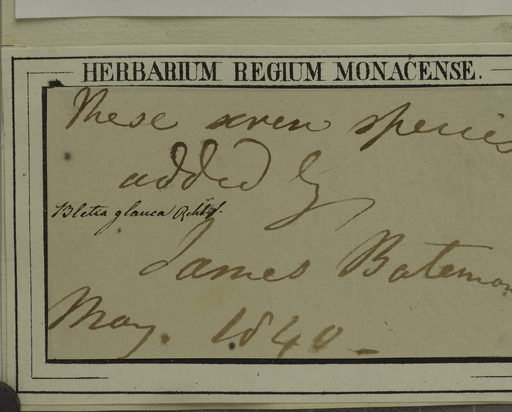 HERBARIUM REGIUM MONACENSE.
These seven species
added by
Bletia glauca Rchb f.
James Bateman
May. 1840